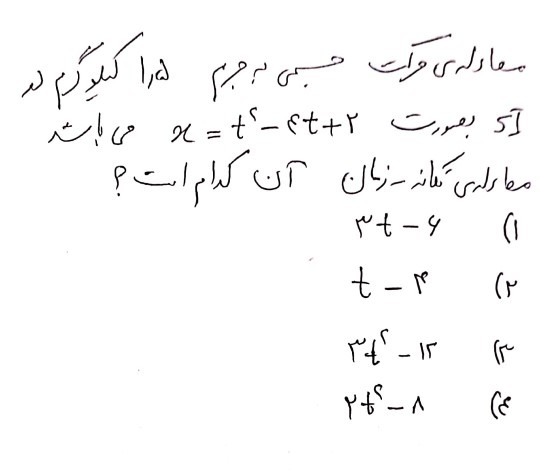 معادله‌ی حرکت جسمی به جرم ۱٫۵ کیلوگرم در
SI بصورت x = t² - ۴t + ۲ می باشد
معادله‌ی تکانه - زمان آن کدام است ؟
۱) ۳t - ۶
۲) t - ۴
۳) ۳t² - ۱۲
۴) ۲t² - ۸